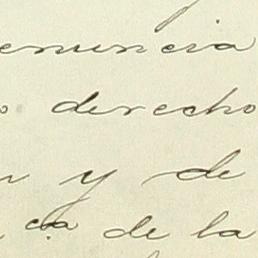 enuncia
o derecho
n y de
ca de la